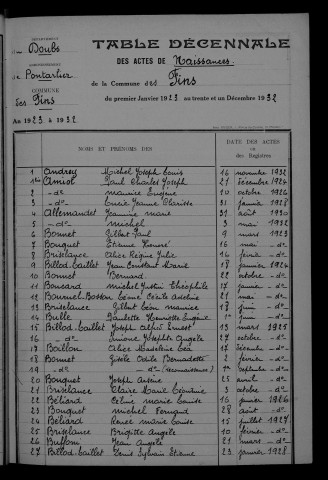 DÉPARTEMENT
du Doubs
ARRONDISSEMENT
de Pontarlier
COMMUNE
des Fins
An 1923 à 1932
TABLE DÉCENNALE
DES ACTES DE Naissances
de la Commune des Fins
du premier Janvier 1923 au trente et un Décembre 1932
NOMS ET PRÉNOMS
DATES DES ACTES
ou
des Registres
1 Andrey Michel Joseph Louis 16 novembre 1932
1bis Amiot Paul Charles Joseph 21 décembre 1924
2 -do- maurice Eugène 10 octobre 1926
3 -do- Marie Jeanne Clarisse 31 janvier 1928
4 Allemandet Jeannine marie 31 août 1930
5 -do- michel 3 mai 1932
6 Bonnet Gilbert Paul 9 mars 1923
7 Bonguet Etienne Honoré 16 mai -do-
8 Briselance Alice Régine Julie 16 février -do-
9 Billod-Laillet Jean Constant Marie 18 janvier 1924
10 Bonnet Bernard 22 octobre -do-
11 Boucard michel Justin Théophile 17 -do-
12 21 mai -do-
13 Briselance Gilbert Léon maurice 17 juin -do-
14 Bulle Paulette Henriette Eugénie 1er juin -do-
15 Billod-Laillet Joseph Alfred Ernest 13 mars 1925
16 -do- Simone Joseph Angèle 27 octobre -do-
17 Boillon Alice Madeleine 1 décembre -do-
18 Bonnet Gisèle Odile Bernadette 2 février -do-
19 -do- -do- (reconnaissance) 1er septembre -do-
20 Bonguet Joseph Antoine 25 avril -do-
21 Briselance Claire Marie Germaine 3 octobre -do-
22 Béliard Louis Marie Etienne 16 janvier 1926
23 Bonguet michel Fernand 28 août -do-
24 Béliard Renée marie Louise 15 juillet 1927
25 Briselance Brigitte Angèle 10 février -do-
26 Buffoni Jean Angèle 21 mars -do-
27 Billod-Laillet Denis Sylvain Etienne 23 janvier 1928